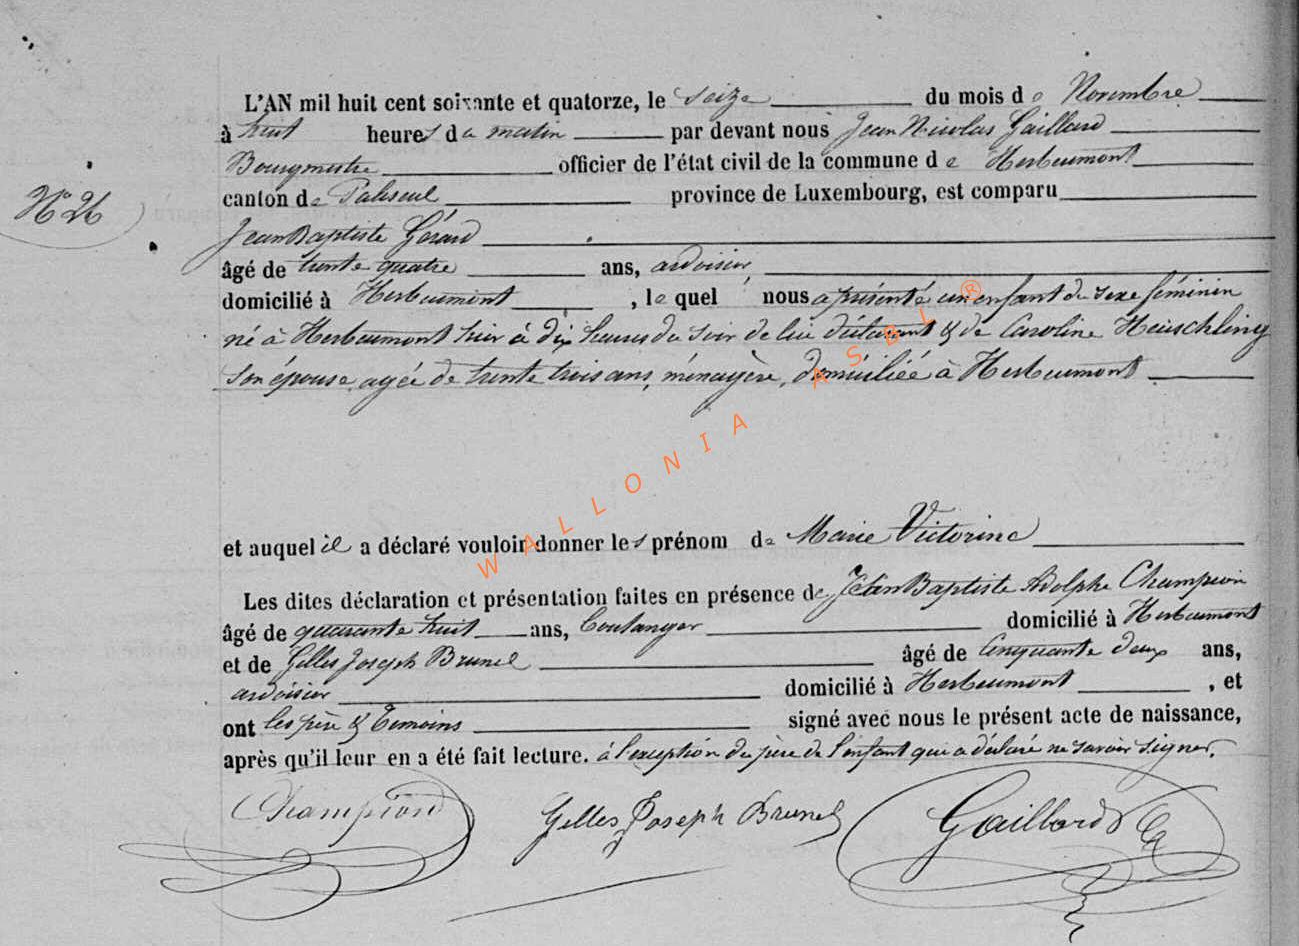 L'AN mil huit cent soixante et quatorze, le seize du mois de Novembre
à huit heures du matin par devant nous Jean Nicolas Gaillard
Bourgmestre officier de l'état civil de la commune de Herbeumont
N° 26
canton de Paliseul province de Luxembourg, est comparu
Jean Baptiste Gérard
âgé de trente quatre ans, ardoisier,
domicilié à Herbeumont, lequel nous a présenté un enfant du sexe féminin
né à Herbeumont hier à dix heures du soir de lui déclarant & de Caroline Heuschling
son épouse agée de trente trois ans, ménagère, domiciliée à Herbeumont
WALLONIA ASBL ®
et auquel il a déclaré vouloir donner les prénom de Marie Victorine
Les dites déclaration et présentation faites en présence de Jean Baptiste Adolphe Champion
âgé de quarante huit ans, boulanger domicilié à Herbeumont
et de Gilles Joseph Brunel âgé de cinquante deux ans,
ardoisier domicilié à Herbeumont, et
ont les père & témoins signé avec nous le présent acte de naissance,
après qu'il leur en a été fait lecture. à l'exception du père de l'enfant qui a déclaré ne savoir signer.
Champion Gilles Joseph Brunel Gaillard